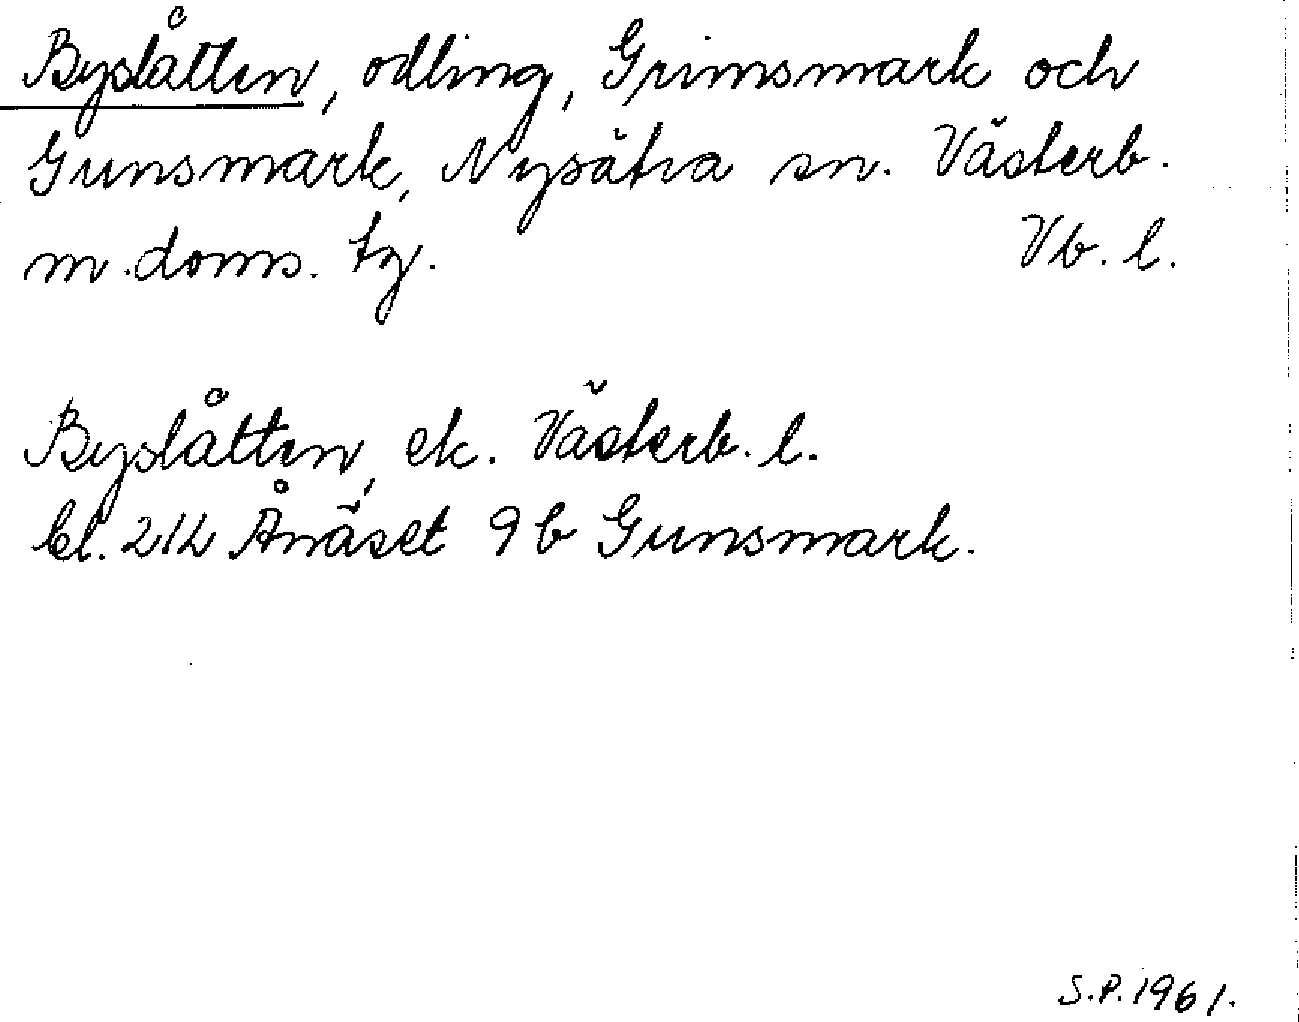 Byslåtten, odling, Grimsmark och
Gunsmark, Nysätra sn. Västerb.
m. doms. tg. Vb. l.
Byslåtten, ek. Västerb. l.
bl. 212 Ånäset 9b Gunsmark.
S.P. 1961.